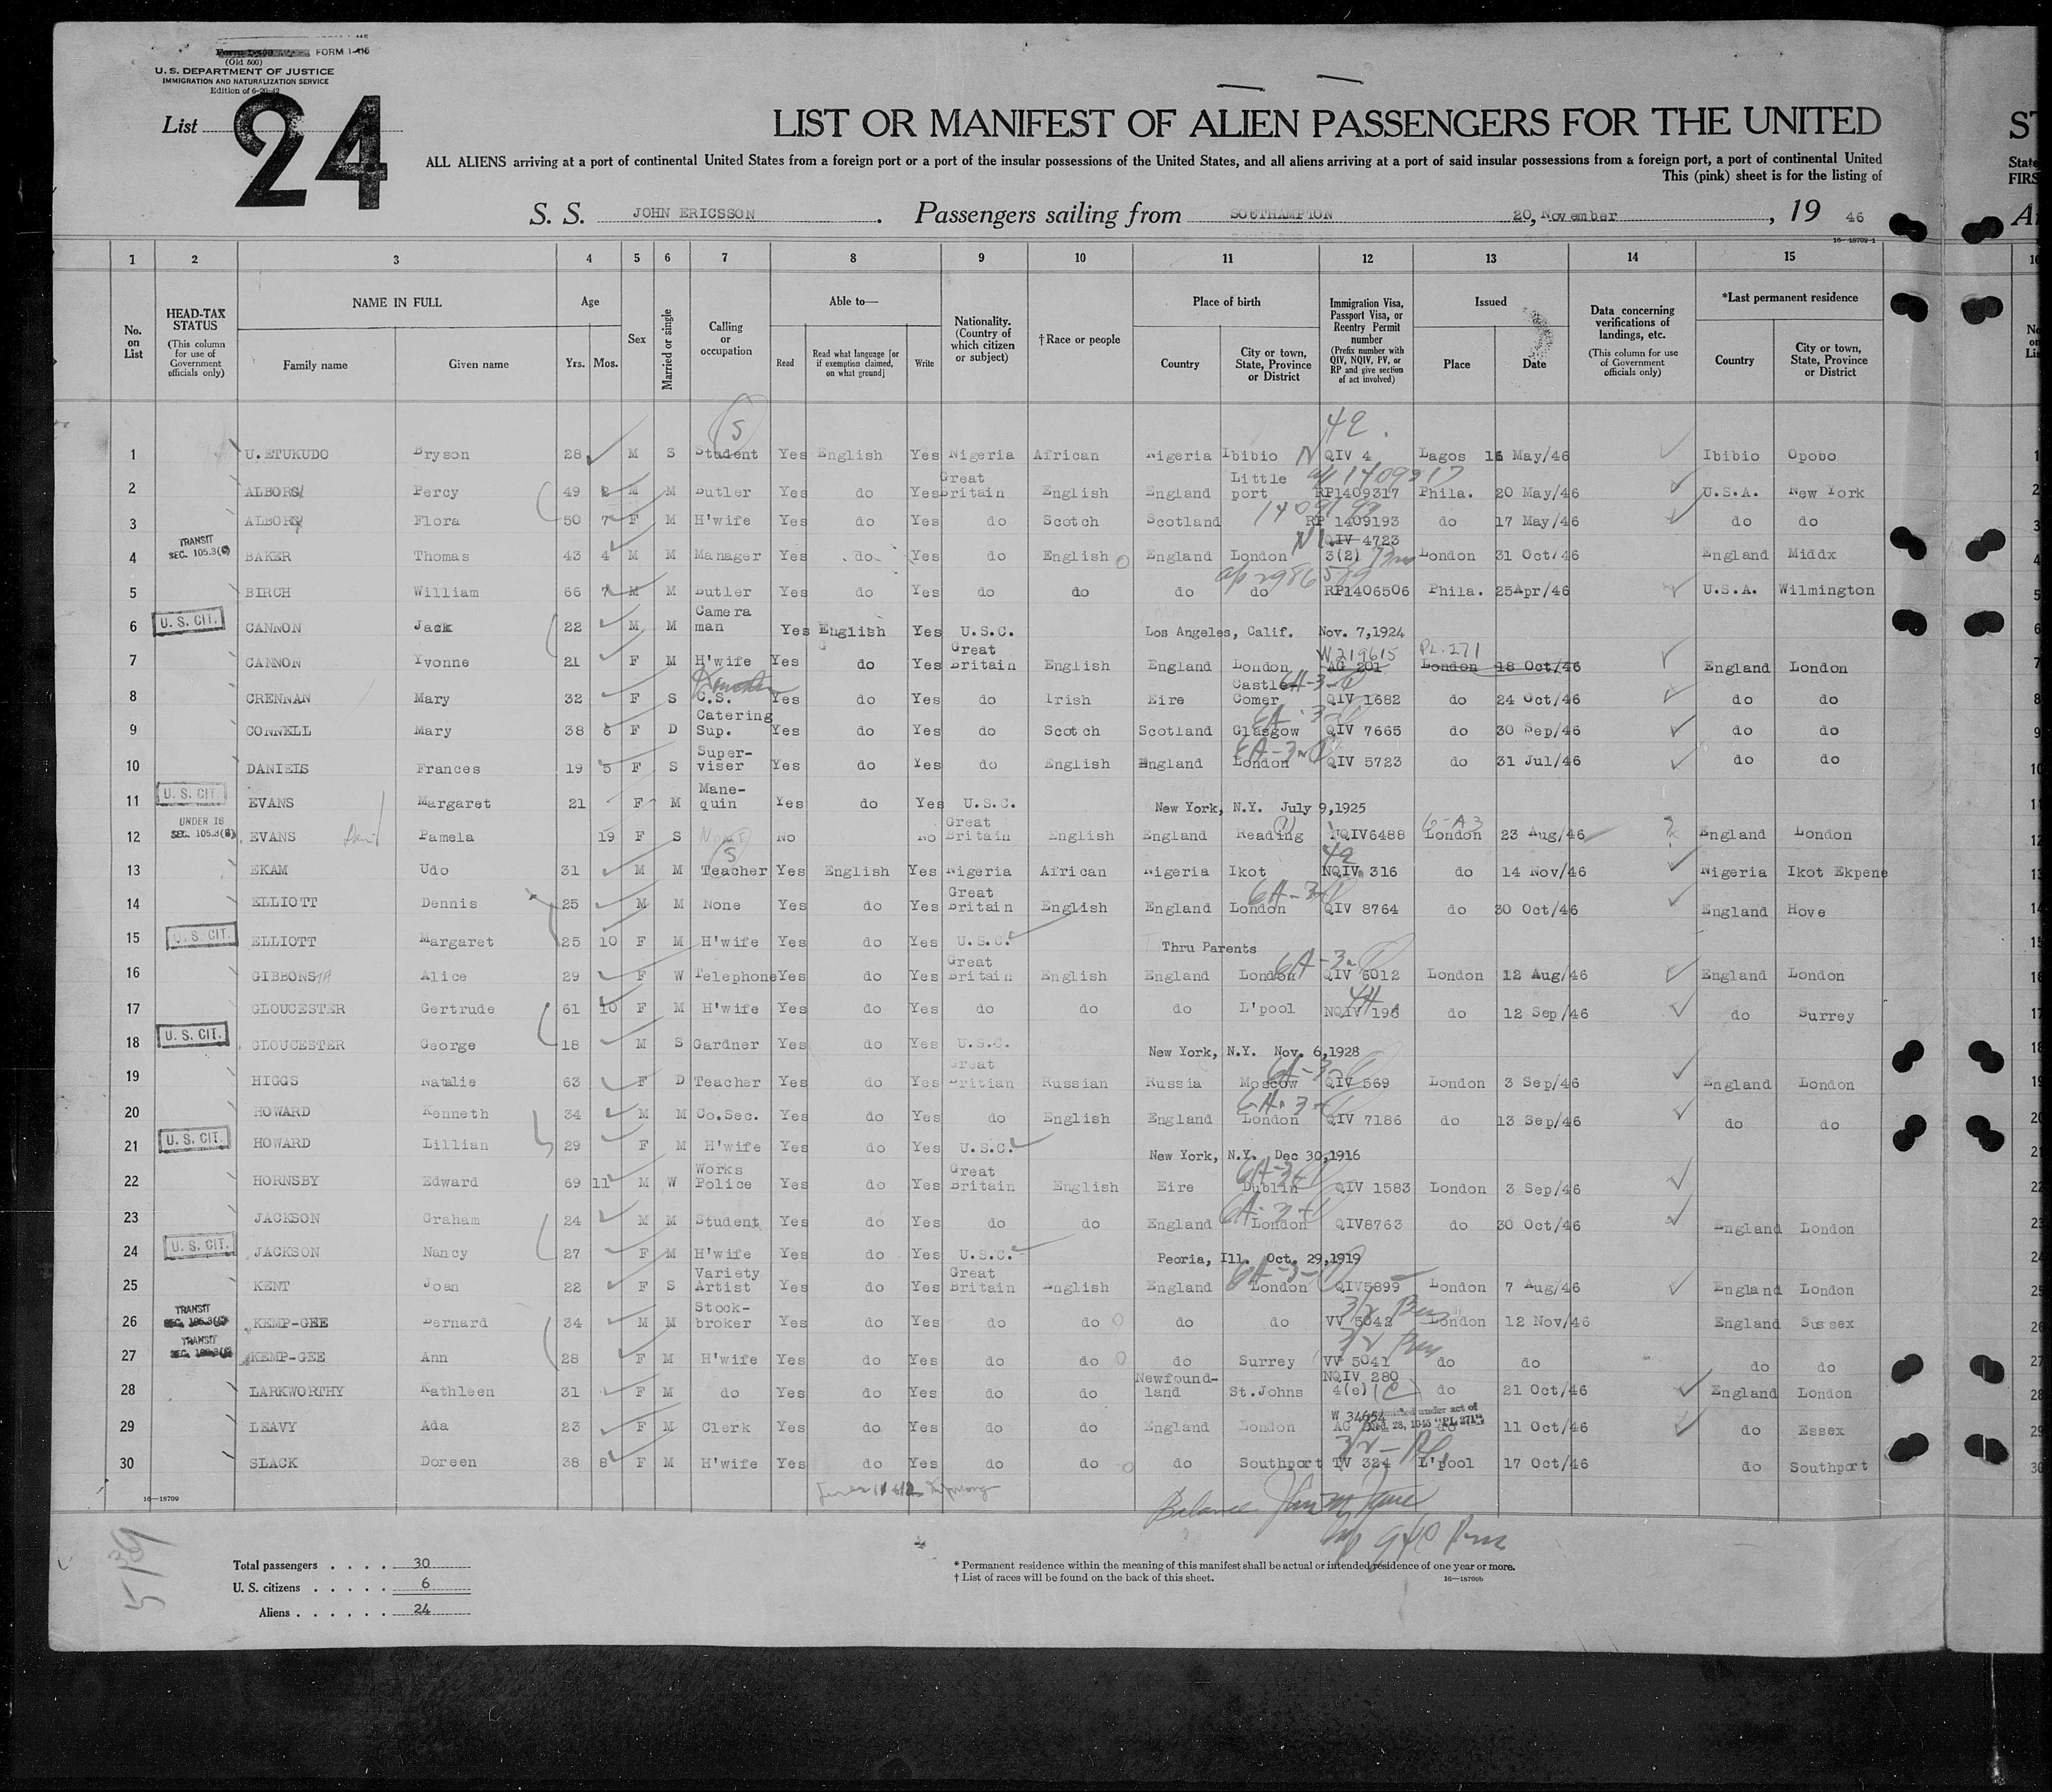 FORM I-415
(Old 500)
U. S. DEPARTMENT OF JUSTICE
IMMIGRATION AND NATURALIZATION SERVICE
Edition of 6-20-42
List 24
LIST OR MANIFEST OF ALIEN PASSENGERS FOR THE UNITED
ALL ALIENS arriving at a port of continental United States from a foreign port or a port of the insular possessions of the United States, and all aliens arriving at a port of said insular possessions from a foreign port, a port of continental United
This (pink) sheet is for the listing of
S. S. JOHN ERICSSON. Passengers sailing from SOUTHAMPTON 20, November, 19 46
16-18709-1
1 2 3 4 5 6 7 8 9 10 11 12 13 14 15
No. on List
HEAD-TAX STATUS (This column for use of Government officials only)
NAME IN FULL Family name Given name
Age Yrs. Mos.
Sex
Married or single
Calling or occupation
Able to— Read Read what language [or if exemption claimed, on what ground] Write
Nationality. (Country of which citizen or subject)
†Race or people
Place of birth Country City or town, State, Province or District
Immigration Visa, Passport Visa, or Reentry Permit number (Prefix number with QIV, NQIV, PV, or RP and give section of act involved)
Issued Place Date
Data concerning verifications of landings, etc. (This column for use of Government officials only)
*Last permanent residence Country City or town, State, Province or District
1 U.ETUKUDO Bryson 28 M S Student Yes English Yes Nigeria African Nigeria Ibibio QIV 4 Lagos 16 May/46 Ibibio Opobo
2 ALBORS Percy 49 2 M M Butler Yes do Yes Great Britain English England Little port RP1409317 Phila. 20 May/46 U.S.A. New York
3 ALBORS Flora 50 7 F M H'wife Yes do Yes do Scotch Scotland RP 1409193 do 17 May/46 do do
4 TRANSIT SEC. 105.3(C) BAKER Thomas 43 4 M M Manager Yes do Yes do English England London QIV 4723 3(2) London 31 Oct/46 England Middx
5 BIRCH William 66 7 M M Butler Yes do Yes do do do do RP1406506 Phila. 25Apr/46 U.S.A. Wilmington
6 U. S. CIT. CANNON Jack 22 M M Camera man Yes English Yes U.S.C. Los Angeles, Calif. Nov. 7,1924
7 CANNON Yvonne 21 F M H'wife Yes do Yes Great Britain English England London W219615 AG 201 PL.271 London 18 Oct/46 England London
8 CRENNAN Mary 32 F S C.S. Yes do Yes do Irish Eire Castle Comer 6A-3- QIV 1682 do 24 Oct/46 do do
9 CONNELL Mary 38 6 F D Catering Sup. Yes do Yes do Scotch Scotland Glasgow QIV 7665 do 30 Sep/46 do do
10 DANIELS Frances 19 5 F S Super-viser Yes do Yes do English England London QIV 5723 do 31 Jul/46 do do
11 U. S. CIT. EVANS Margaret 21 F M Mane-quin Yes do Yes U.S.C. New York, N.Y. July 9,1925
12 UNDER 16 SEC. 105.3(B) EVANS Pamela 19 F S None No No Great Britain English England Reading NQIV6488 6-A3 London 23 Aug/46 England London
13 EKAM Udo 31 M M Teacher Yes English Yes Nigeria African Nigeria Ikot NQIV 316 do 14 Nov/46 Nigeria Ikot Ekpene
14 ELLIOTT Dennis 25 M M None Yes do Yes Great Britain English England London QIV 8764 do 30 Oct/46 England Hove
15 U. S. CIT. ELLIOTT Margaret 25 10 F M H'wife Yes do Yes U.S.C. Thru Parents
16 GIBBONS Alice 29 F W Telephone Yes do Yes Great Britain English England London QIV 6012 London 12 Aug/46 England London
17 GLOUCESTER Gertrude 61 10 F M H'wife Yes do Yes do do do L'pool NQIV 196 do 12 Sep/46 do Surrey
18 U. S. CIT. GLOUCESTER George 18 M S Gardner Yes do Yes U.S.C. New York, N.Y. Nov. 6,1928
19 HIGGS Natalie 63 F D Teacher Yes do Yes Great Britian Russian Russia Moscow QIV 569 London 3 Sep/46 England London
20 HOWARD Kenneth 34 M M Co.Sec. Yes do Yes do English England London QIV 7186 do 13 Sep/46 do do
21 U. S. CIT. HOWARD Lillian 29 F M H'wife Yes do Yes U.S.C. New York, N.Y. Dec 30,1916
22 HORNSBY Edward 69 11 M W Works Police Yes do Yes Great Britain English Eire Dublin QIV 1583 London 3 Sep/46
23 JACKSON Graham 24 M M Student Yes do Yes do do England London QIV8763 do 30 Oct/46 England London
24 U. S. CIT. JACKSON Nancy 27 F M H'wife Yes do Yes U.S.C. Peoria, Ill. Oct. 29,1919
25 KENT Joan 22 F S Variety Artist Yes do Yes Great Britain English England London QIV5899 London 7 Aug/46 England London
26 TRANSIT SEC. 105.3(C) KEMP-GEE Bernard 34 M M Stock-broker Yes do Yes do do do do VV 5042 London 12 Nov/46 England Sussex
27 TRANSIT SEC. 105.3(C) KEMP-GEE Ann 28 F M H'wife Yes do Yes do do do Surrey VV 5041 do do do do
28 LARKWORTHY Kathleen 31 F M do Yes do Yes do do Newfound-land St.Johns NQIV 280 4(e) do 21 Oct/46 England London
29 LEAVY Ada 23 F M Clerk Yes do Yes do do England London W 34654 AG do 11 Oct/46 do Essex
30 SLACK Doreen 38 8 F M H'wife Yes do Yes do do do Southport TV 324 L'pool 17 Oct/46 do Southport
16—18709
Total passengers . . . . 30
U. S. citizens . . . . . 6
Aliens . . . . . . 24
* Permanent residence within the meaning of this manifest shall be actual or intended residence of one year or more.
† List of races will be found on the back of this sheet.
16—18709b